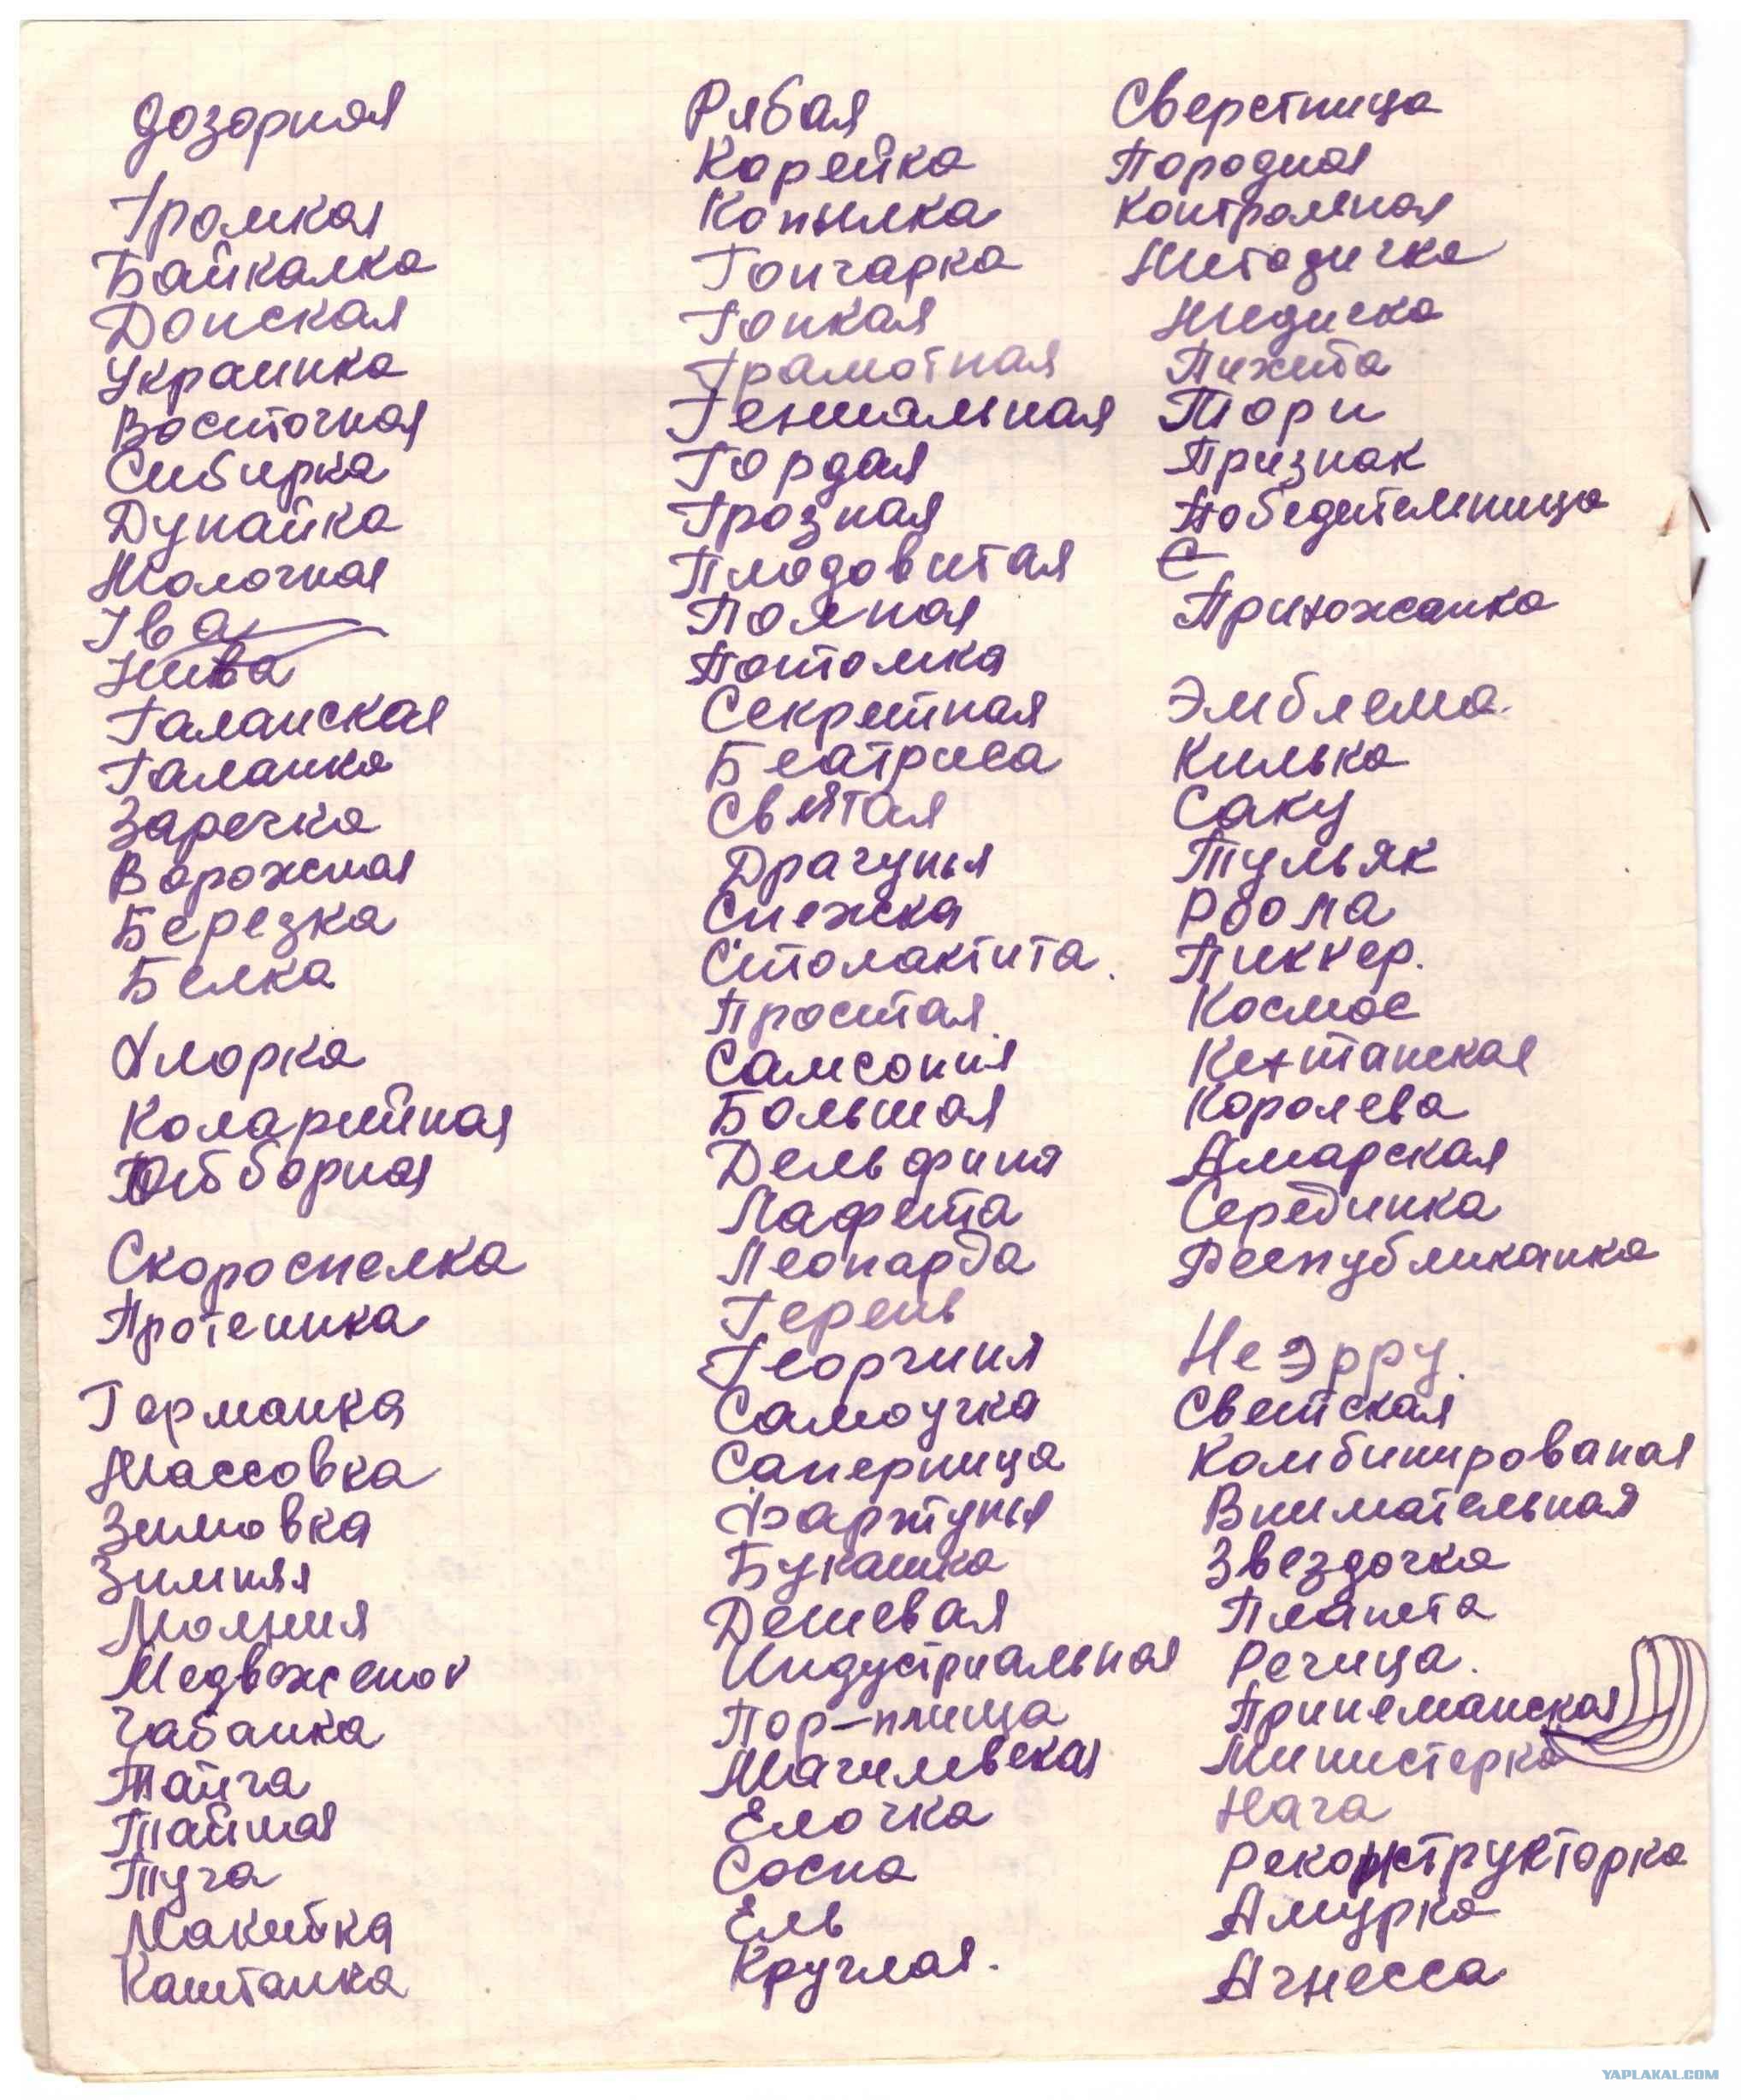 Дозорная
Громкая
Байкалка
Донская
Украинка
Восточная
Сибирка
Дунайка
Молочная
Ива
Нива
Галанская
Галанка
Заречка
Ворожная
Березка
Белка
Хлорка
Коларийная
Отборная
Скороспелка
Протеинка
Германка
Массовка
Зимовка
Зимняя
Молния
Медвеженок
Чабанка
Тайга
Тайная
Туча
Макийка
Каштанка
Рябая
Карейка
Копилка
Гончарка
Гонкая
Грамотная
Гениальная
Гордая
Грозная
Плодовитая
Полная
Потомка
Секретная
Беатриса
Святая
Драгунья
Снежка
Столактита.
Простая.
Самсония
Большая
Дельфиня
Лафета
Леопарда
Герень
Георгиня
Самоучка
Саперница
Фартунья
Букашка
Дешевая
Индустриальная
Пор-плица
Магилевская
Елочка
Сосна
Ель
Круглая.
Сверстница
Породная
Контрольная
Методичка
Медичка
Пижита
Тори
Признак
Победительница
С
Прихожанка
Эмблема.
Килька
Саку
Тульяк
Роома
Пиккер.
Космос
Кехтанская
Королева
Амарская
Серединка
Республиканка
Не Эрру.
Светская
Комбинированая
Внимательная
Звездочка
Планета
Речица.
Принеманская
Министерка
Нача
Реконструкторка
Амурка
Агнесса
YAPLAKAL.COM